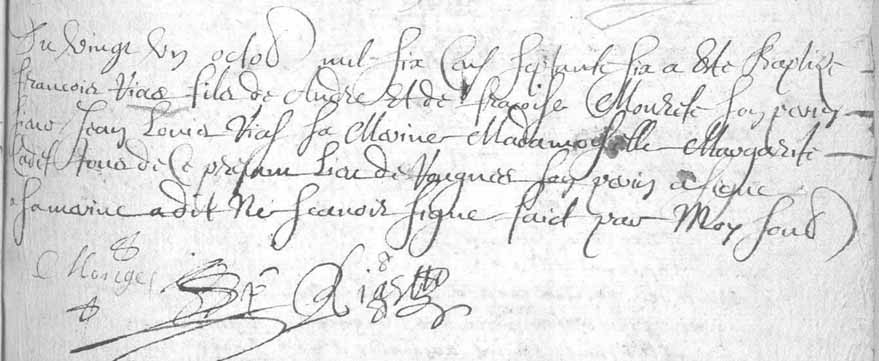 Du vingt un octob mil six cens septante six a este baptize
francois Vias fils de Andre et de francoise Mourete son perin
sieur Jean Louis Vias sa Marine Madamoyselle Margarite
tous de ce presant lieu de son perin a signe
sa marine a dit ne scavoir signe faict par Moy soub
Monges